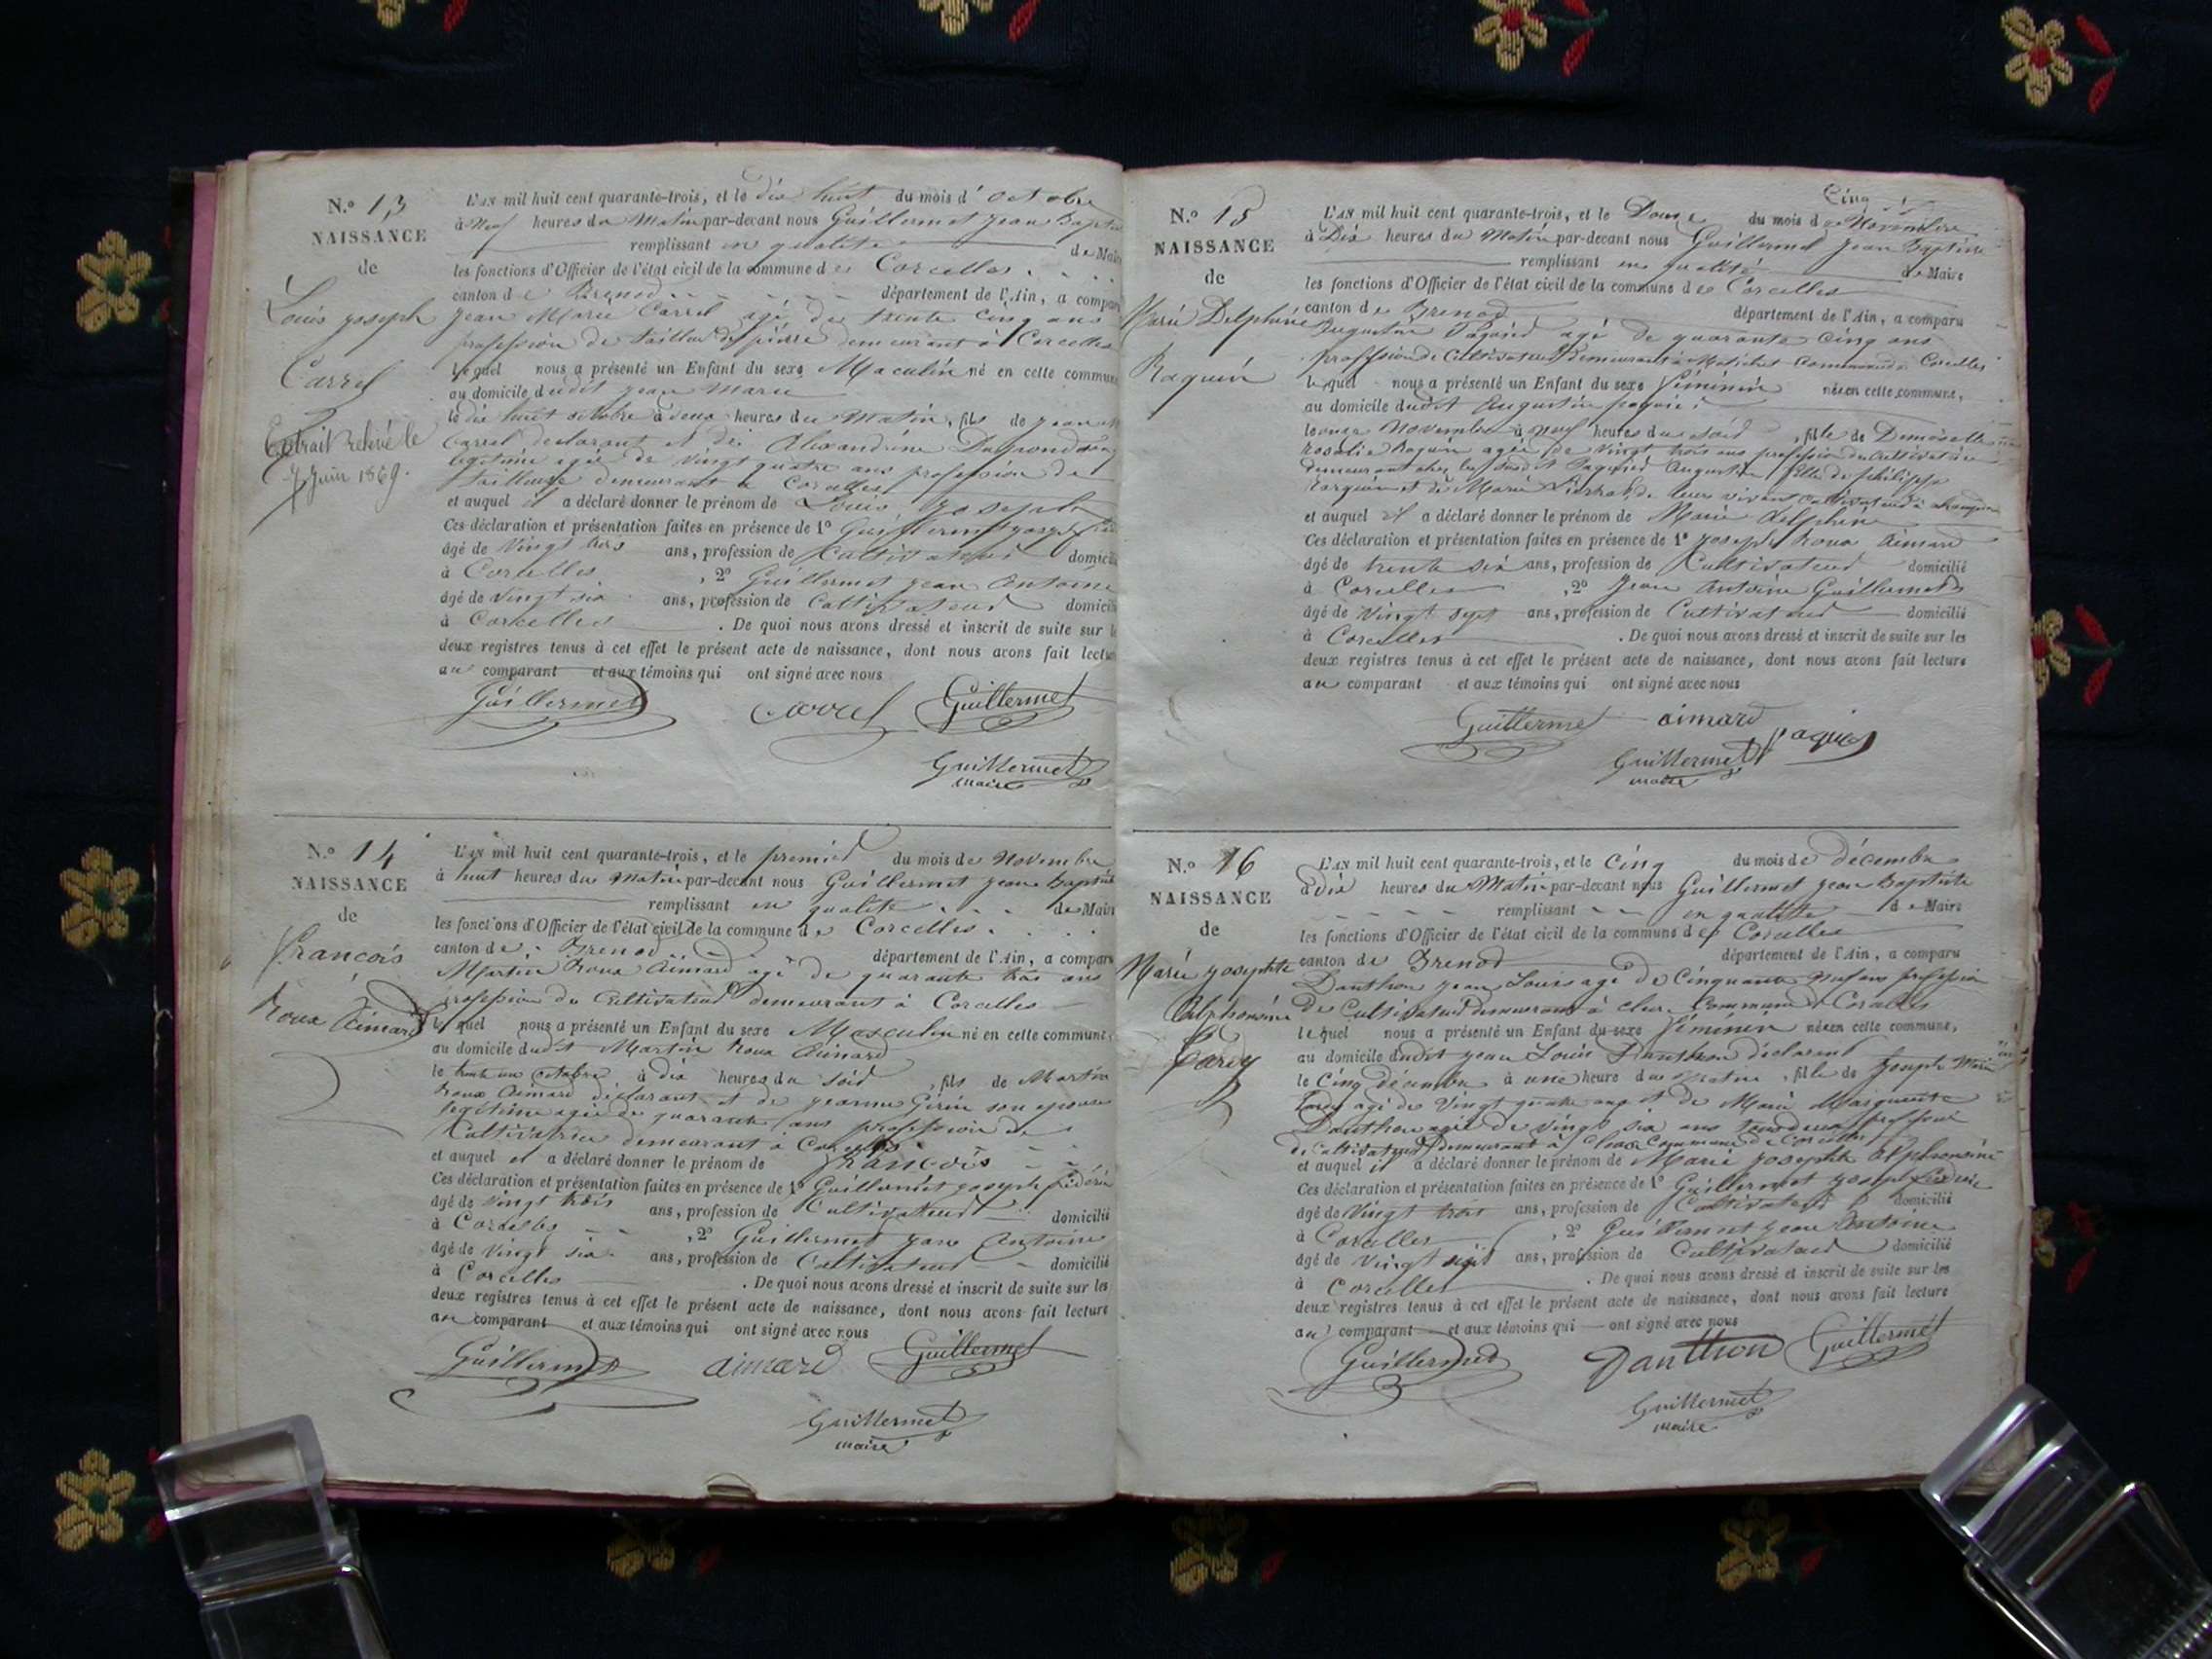 N.o 13
NAISSANCE
de
Louis joseph
Carrel
Extrait relevé le
7 Juin 1869.
L'AN mil huit cent quarante-trois, et le dix huit du mois d'octobre
à Neuf heures du Matin par-devant nous Guillermet jean Baptiste
remplissant en qualité de Maire
les fonctions d'Officier de l'état civil de la commune de Corcelles
canton de Brenod département de l'Ain, a comparu
jean Marie Carrel agé de trente cinq ans
profession de tailleur de pierre demeurant à Corcelles
lequel nous a présenté un Enfant du sexe Maculin né en cette commune
au domicile dudit jean Marie
le dix huit octobre à deux heures du Matin, fils de jean
Carrel declarant et de Alexandrine
legitime agée de vingt quatre ans profession de
tailleuse demeurant à Corcelles
et auquel il a déclaré donner le prénom de Louis joseph
Ces déclaration et présentation faites en présence de 1o Guillermet joseph
âgé de vingt trois ans, profession de Cultivateur domicilié
à Corcelles, 2o Guillermet jean Antoine
âgé de vingt six ans, profession de Cultivateur domicilié
à Corcelles. De quoi nous avons dressé et inscrit de suite sur les
deux registres tenus à cet effet le présent acte de naissance, dont nous avons fait lecture
au comparant et aux témoins qui ont signé avec nous
Guillermet Carrel Guillermet
Guillermet
maire
N.o 14
NAISSANCE
de
francois
Roux Aimard
L'AN mil huit cent quarante-trois, et le premier du mois de Novembre
à huit heures du Matin par-devant nous Guillermet jean Baptiste
remplissant en qualité de Maire
les fonctions d'Officier de l'état civil de la commune de Corcelles
canton de Brenod département de l'Ain, a comparu
Martin Roux Aimard agé de quarante trois ans
profession de Cultivateur demeurant à Corcelles
lequel nous a présenté un Enfant du sexe Masculin né en cette commune,
au domicile dudit Martin Roux Aimard
le trente un octobre à dix heures du soir, fils de Martin
Roux Aimard déclarant et de jeanne Girin son epouse
legitime agée de quarante ans profession de
Cultivatrice demeurant à Corcelles
et auquel il a déclaré donner le prénom de francois
Ces déclaration et présentation faites en présence de 1o Guillermet joseph fréderic
âgé de vingt trois ans, profession de Cultivateur domicilié
à Corcelles, 2o Guillermet jean Antoine
âgé de vingt six ans, profession de Cultivateur domicilié
à Corcelles. De quoi nous avons dressé et inscrit de suite sur les
deux registres tenus à cet effet le présent acte de naissance, dont nous avons fait lecture
au comparant et aux témoins qui ont signé avec nous
Guillermet aimard Guillermet
Guillermet
maire
N.o 15
NAISSANCE
de
Marie Delphine
Raquin
Cinq
L'AN mil huit cent quarante-trois, et le Douze du mois de Novembre
à Dix heures du Matin par-devant nous Guillermet jean Baptiste
remplissant en qualité de Maire
les fonctions d'Officier de l'état civil de la commune de Corcelles
canton de Brenod département de l'Ain, a comparu
Augustin agé de quarante cinq ans
proffesion de Cultivateur demeurant à commune de Corcelles
lequel nous a présenté un Enfant du sexe féminin née en cette commune,
au domicile dudit Augustin
le onze Novembre à neuf heures du soir, fille de Demoiselle
Rosalie Raquin agée de vingt trois ans profession de cultivatrice
demeurant chez le susdit Augustin fille de philippe
Raquin et de Marie de leurs vivant cultivateurs à
et auquel il a déclaré donner le prénom de Marie delphine
Ces déclaration et présentation faites en présence de 1o joseph Roux Aimard
âgé de trente six ans, profession de Cultivateur domicilié
à Corcelles, 2o jean Antoine Guillermet
âgé de vingt sept ans, profession de Cultivateur domicilié
à Corcelles. De quoi nous avons dressé et inscrit de suite sur les
deux registres tenus à cet effet le présent acte de naissance, dont nous avons fait lecture
au comparant et aux témoins qui ont signé avec nous
Guillermet aimard
Guillermet
maire
N.o 16
NAISSANCE
de
Marie josephte
Alphonsine
Carry
L'AN mil huit cent quarante-trois, et le cinq du mois de décembre
à dix heures du Matin par-devant nous Guillermet jean Baptiste
remplissant en qualité de Maire
les fonctions d'Officier de l'état civil de la commune de Corcelles
canton de Brenod département de l'Ain, a comparu
Danthon jean Louis agé de Cinquante neuf ans profession
de Cultivateur demeurant à commune de Corcelles
lequel nous a présenté un Enfant du sexe féminin née en cette commune,
au domicile dudit jean Louis Danthon déclarant
le cinq décembre à une heure du Matin, fille de joseph Marie
agé de vingt quatre ans et de Marie Marguerite
Danthon agée de vingt six ans tous deux profession
de Cultivateur demeurant à commune de Corcelles
et auquel il a déclaré donner le prénom de Marie josephte Alphonsine
Ces déclaration et présentation faites en présence de 1o Guillermet joseph fréderic
âgé de vingt trois ans, profession de Cultivateur domicilié
à Corcelles, 2o Guillermet jean Antoine
âgé de vingt sept ans, profession de Cultivateur domicilié
à Corcelles. De quoi nous avons dressé et inscrit de suite sur les
deux registres tenus à cet effet le présent acte de naissance, dont nous avons fait lecture
au comparant et aux témoins qui ont signé avec nous
Guillermet Danthon Guillermet
Guillermet
maire